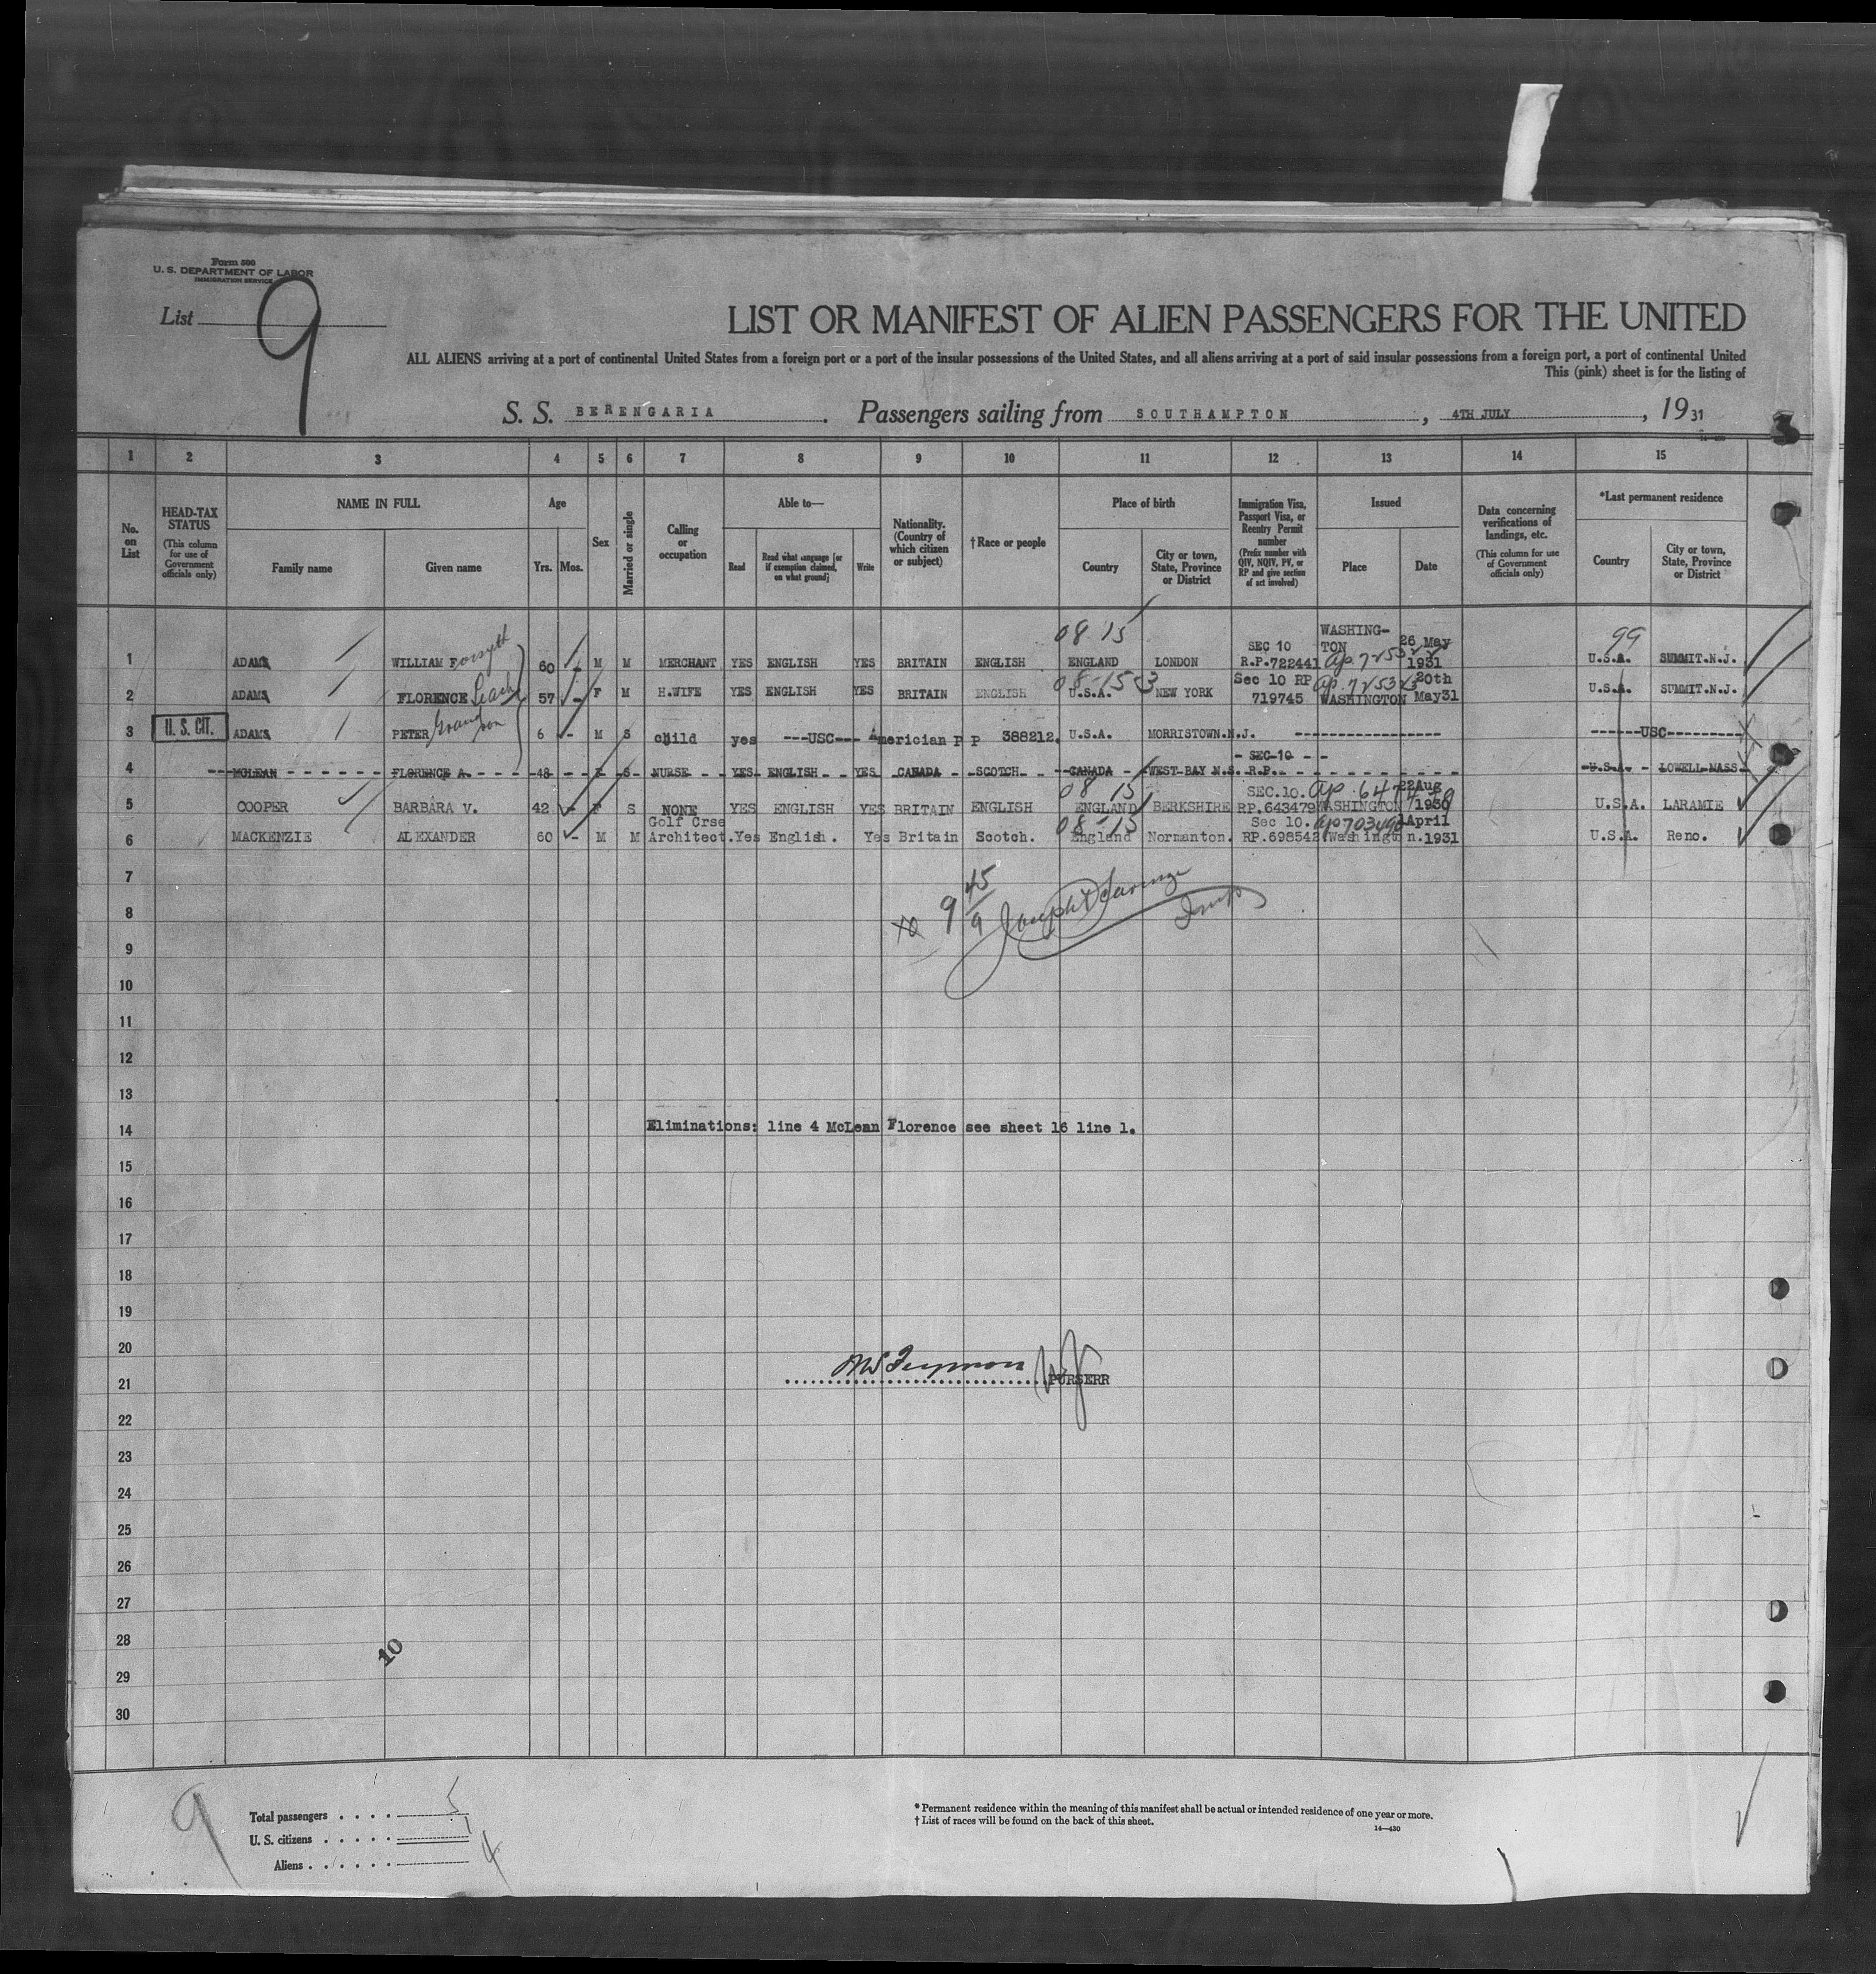 Form 500
U. S. DEPARTMENT OF LABOR
IMMIGRATION SERVICE
List 9
LIST OR MANIFEST OF ALIEN PASSENGERS FOR THE UNITED
ALL ALIENS arriving at a port of continental United States from a foreign port or a port of the insular possessions of the United States, and all aliens arriving at a port of said insular possessions from a foreign port, a port of continental United
This (pink) sheet is for the listing of
S. S. BERENGARIA. Passengers sailing from SOUTHAMPTON, 4TH JULY, 1931
3
1 2 3 4 5 6 7 8 9 10 11 12 13 14 15
No. on List
HEAD-TAX STATUS (This column for use of Government officials only)
NAME IN FULL
Family name Given name
Age
Yrs. Mos.
Sex
Married or single
Calling or occupation
Able to—
Read Read what language [or if exemption claimed, on what ground] Write
Nationality. (Country of which citizen or subject)
†Race or people
Place of birth
Country City or town, State, Province or District
Immigration Visa, Passport Visa, or Reentry Permit number (Prefix number with QIV, NQIV, PV, or RP and give section of act involved)
Issued
Place Date
Data concerning verifications of landings, etc. (This column for use of Government officials only)
*Last permanent residence
Country City or town, State, Province or District
08 15 99
1 ADAMS WILLIAM Forsyth 60 - M M MERCHANT YES ENGLISH YES BRITAIN ENGLISH ENGLAND LONDON SEC 10 R.P.722441 WASHINGTON 26 May 1931 U.S.A. SUMMIT.N.J.
2 ADAMS FLORENCE Leach 57 - F M H.WIFE YES ENGLISH YES BRITAIN ENGLISH U.S.A. NEW YORK Sec 10 RP 719745 WASHINGTON 20th May31 U.S.A. SUMMIT.N.J.
3 U. S. CIT. ADAMS PETER Grandson 6 - M S child yes ---USC--- Americian P P 388212. U.S.A. MORRISTOWN.N.J. ------USC---------
4 MCLEAN FLORENCE A. 48 - F S NURSE YES ENGLISH YES CANADA SCOTCH CANADA WEST BAY N.S. SEC 10 R.P. U.S.A. LOWELL MASS
08 15
5 COOPER BARBARA V. 42 - F S NONE YES ENGLISH YES BRITAIN ENGLISH ENGLAND BERKSHIRE SEC.10. RP.643479 WASHINGTON 22Aug 1930 U.S.A. LARAMIE
08-15
6 MACKENZIE ALEXANDER 60 - M M Golf Crse Architect. Yes English. Yes Britain Scotch. England Normanton. Sec 10. RP.698542 Washington. 1April 1931 U.S.A Reno.
7
8
9
10
11
12
13
14 Eliminations: line 4 McLean Florence see sheet 16 line 1.
15
16
17
18
19
20
21 PURSERR
22
23
24
25
26
27
28
10
29
30
9
Total passengers 5
U. S. citizens 1
Aliens 4
* Permanent residence within the meaning of this manifest shall be actual or intended residence of one year or more.
† List of races will be found on the back of this sheet.
14—430